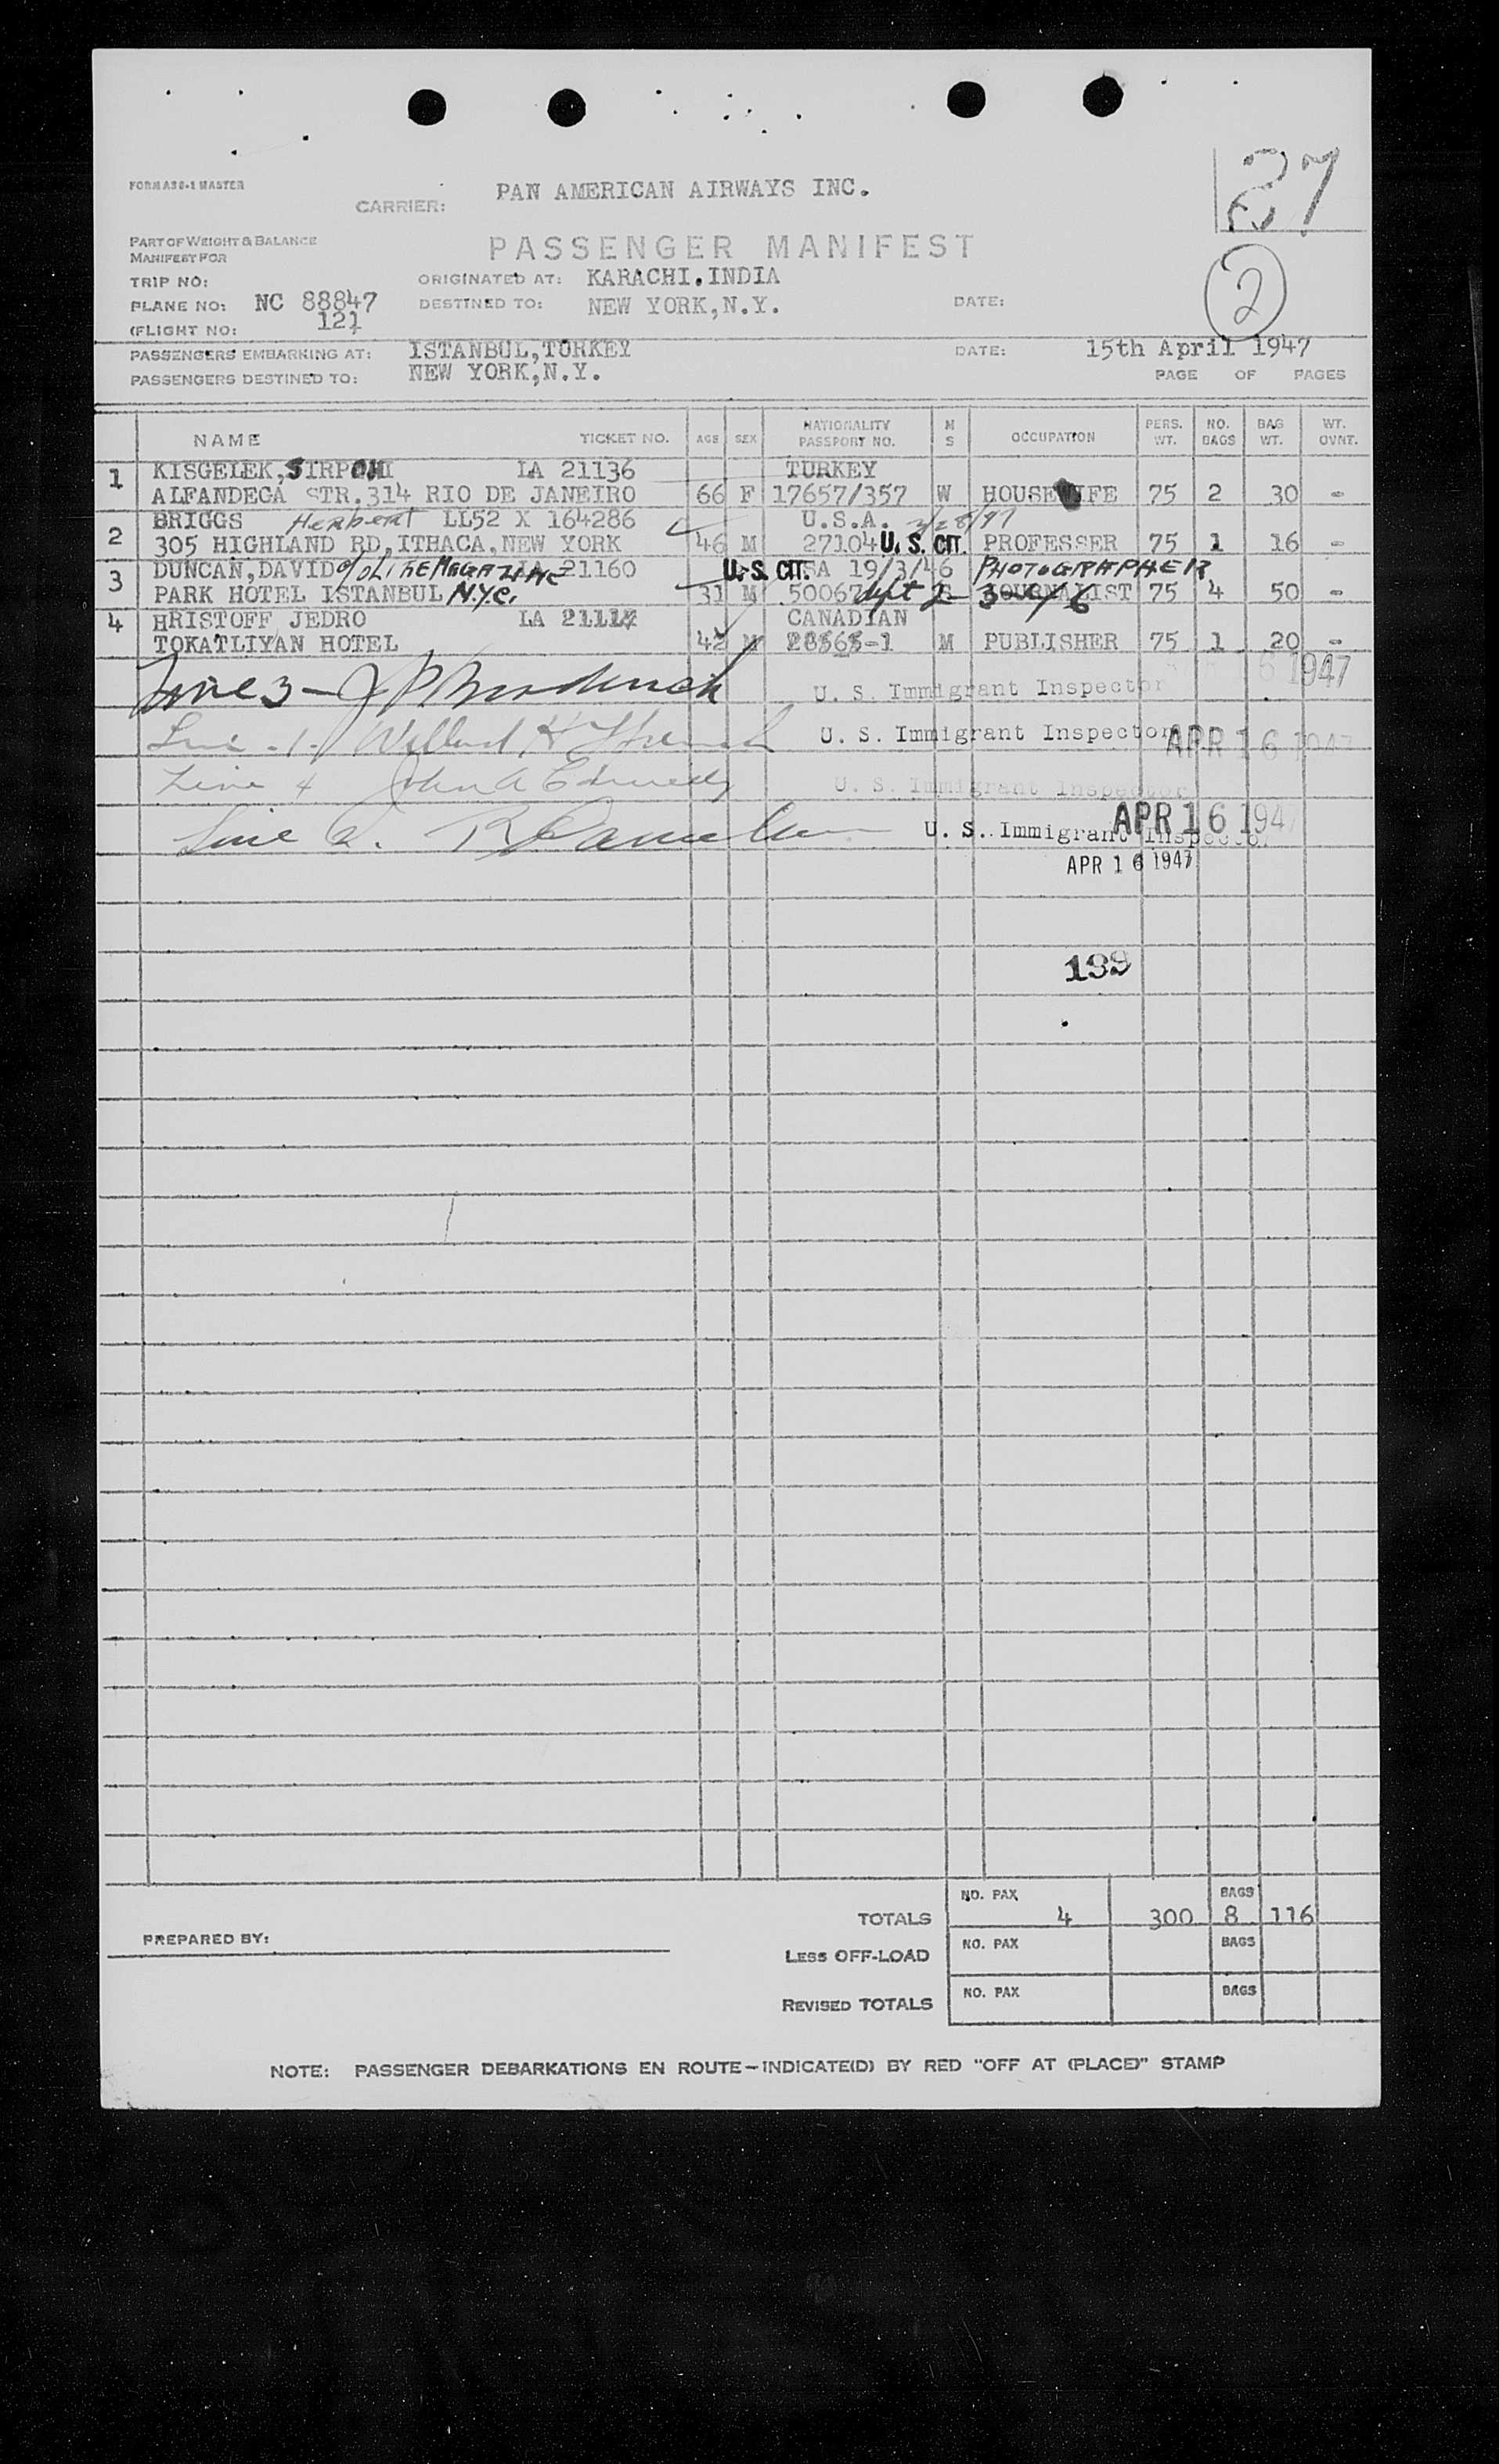 FORM ASS-1 MASTER
CARRIER: PAN AMERICAN AIRWAYS INC.
27
PART OF WEIGHT & BALANCE
MANIFEST FOR
PASSENGER MANIFEST
2
TRIP NO:
ORIGINATED AT: KARACHI.INDIA
PLANE NO: NC 88847
DESTINED TO: NEW YORK,N.Y.
DATE:
(FLIGHT NO: 121
PASSENGERS EMBARKING AT: ISTANBUL,TURKEY
DATE: 15th April 1947
PASSENGERS DESTINED TO: NEW YORK,N.Y.
PAGE OF PAGES
NAME TICKET NO. AGE SEX NATIONALITY PASSPORT NO. M S OCCUPATION PERS. WT. NO. BAGS BAG WT. WT. OVNT.
1 KISGELEK,SIRPOHI LA 21136 TURKEY
ALFANDEGA STR.314 RIO DE JANEIRO 66 F 17657/357 W HOUSEWIFE 75 2 30 -
2 BRIGGS Herbert LL52 X 164286 U.S.A.
305 HIGHLAND RD,ITHACA,NEW YORK 46 M 27104 U.S. CIT. PROFESSER 75 1 16 -
3 DUNCAN,DAVID c/o LIFE MAGAZINE LA 21160 U.S. CIT. USA 19/3/46 PHOTOGRAPHER
PARK HOTEL ISTANBUL N.Y.C. 31 M 50067 Sept 2 JOURNALIST 75 4 50 -
4 HRISTOFF JEDRO LA 21117 CANADIAN
TOKATLIYAN HOTEL 42 M M PUBLISHER 75 1 20 -
Line 3 - J P U. S. Immigrant Inspector 16 1947
Line 1. Willard H U. S. Immigrant Inspector APR 16 1947
Line 4 John A U. S. Immigrant Inspector
Line 2. U. S. Immigrant Inspector APR 16 1947
APR 16 1947
199
TOTALS NO. PAX 4 300 BAGS 8 116
PREPARED BY:
LESS OFF-LOAD NO. PAX BAGS
REVISED TOTALS NO. PAX BAGS
NOTE: PASSENGER DEBARKATIONS EN ROUTE—INDICATE(D) BY RED "OFF AT (PLACE)" STAMP